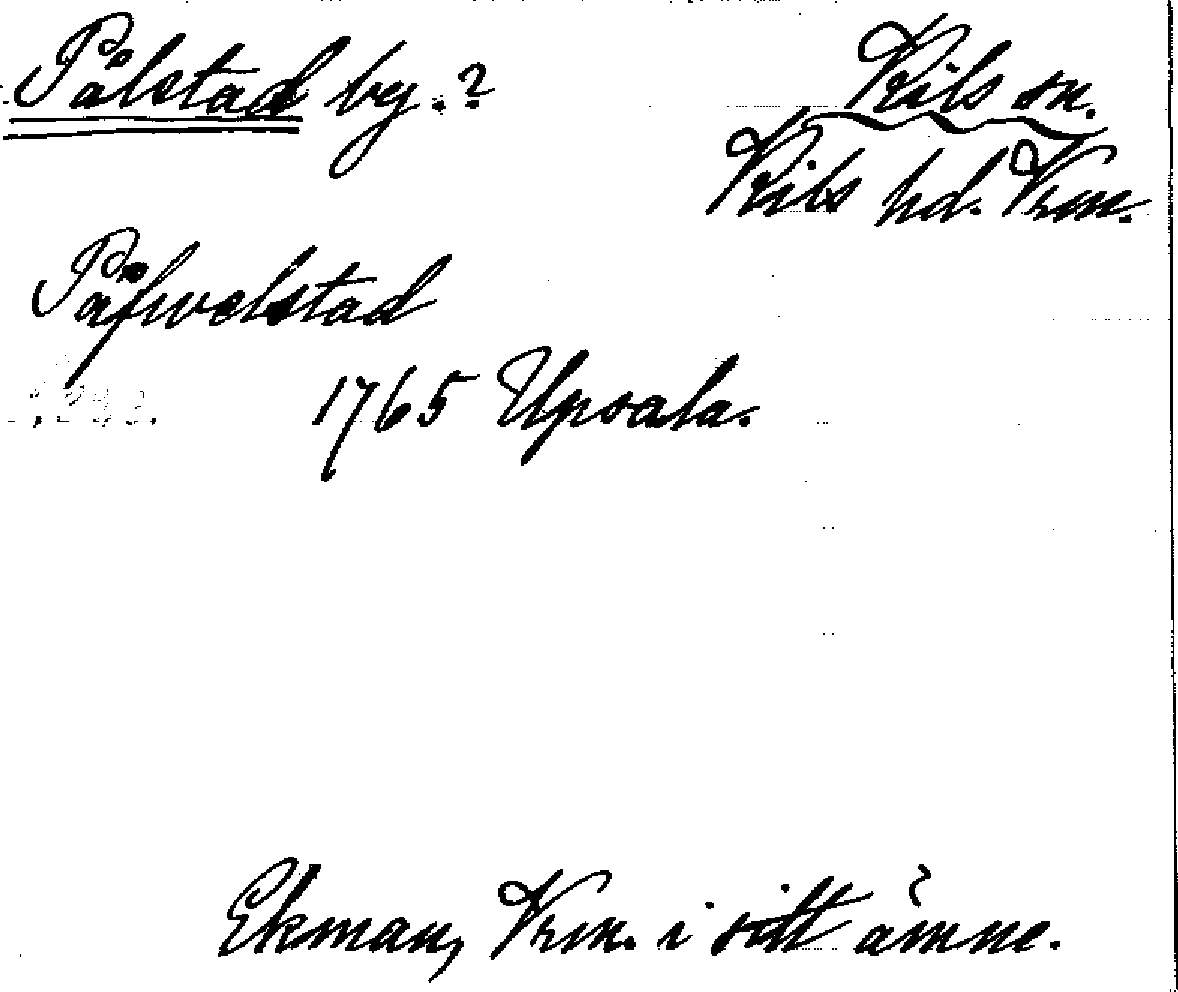 Pålstad by.?
Kils sn.
Kils hd. Vrm.
Påfwelstad
1765 Upsala.
Ekman, Vrm. i sitt ämne.